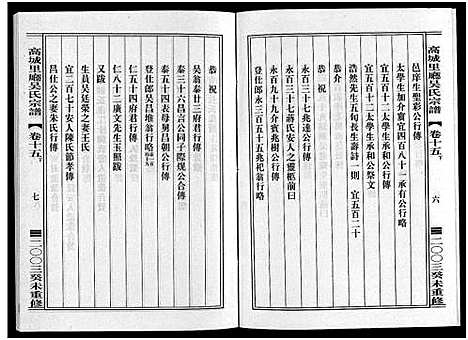 高城里廳吳氏宗譜
卷十五
六
二〇〇三癸未重修
邑庠生聖彩公行傳
太學生加介賓宜四百八十一承有公行略
宜五百十二太學生承和公行傳
宜五百十二太學生承和公祭文
浩然先生五旬長生壽詩一則 宜五百二十
恭介
恭六百九十九介賓兆隆公行傳
永三百三十七兆達公行傳
永三百三十七蔣氏安人之靈柩前曰
登仕郎永三百五十五兆祀翁行略
恭祝
吳翁廿二府君行傳
泰三十六昌言公同子際熀公合傳
泰五十四表母舅昌朝公行傳
登仕郎吳昌堆翁行略
仁五十四府君行傳
仁八十二廣文先生玉照跋
又跋
生員吳廷榮之妻王氏
宜二百七十安人陳氏節孝傳
呂仕公之妻朱氏行傳
高城里廳吳氏宗譜
卷十五
七
二〇〇三癸未重修